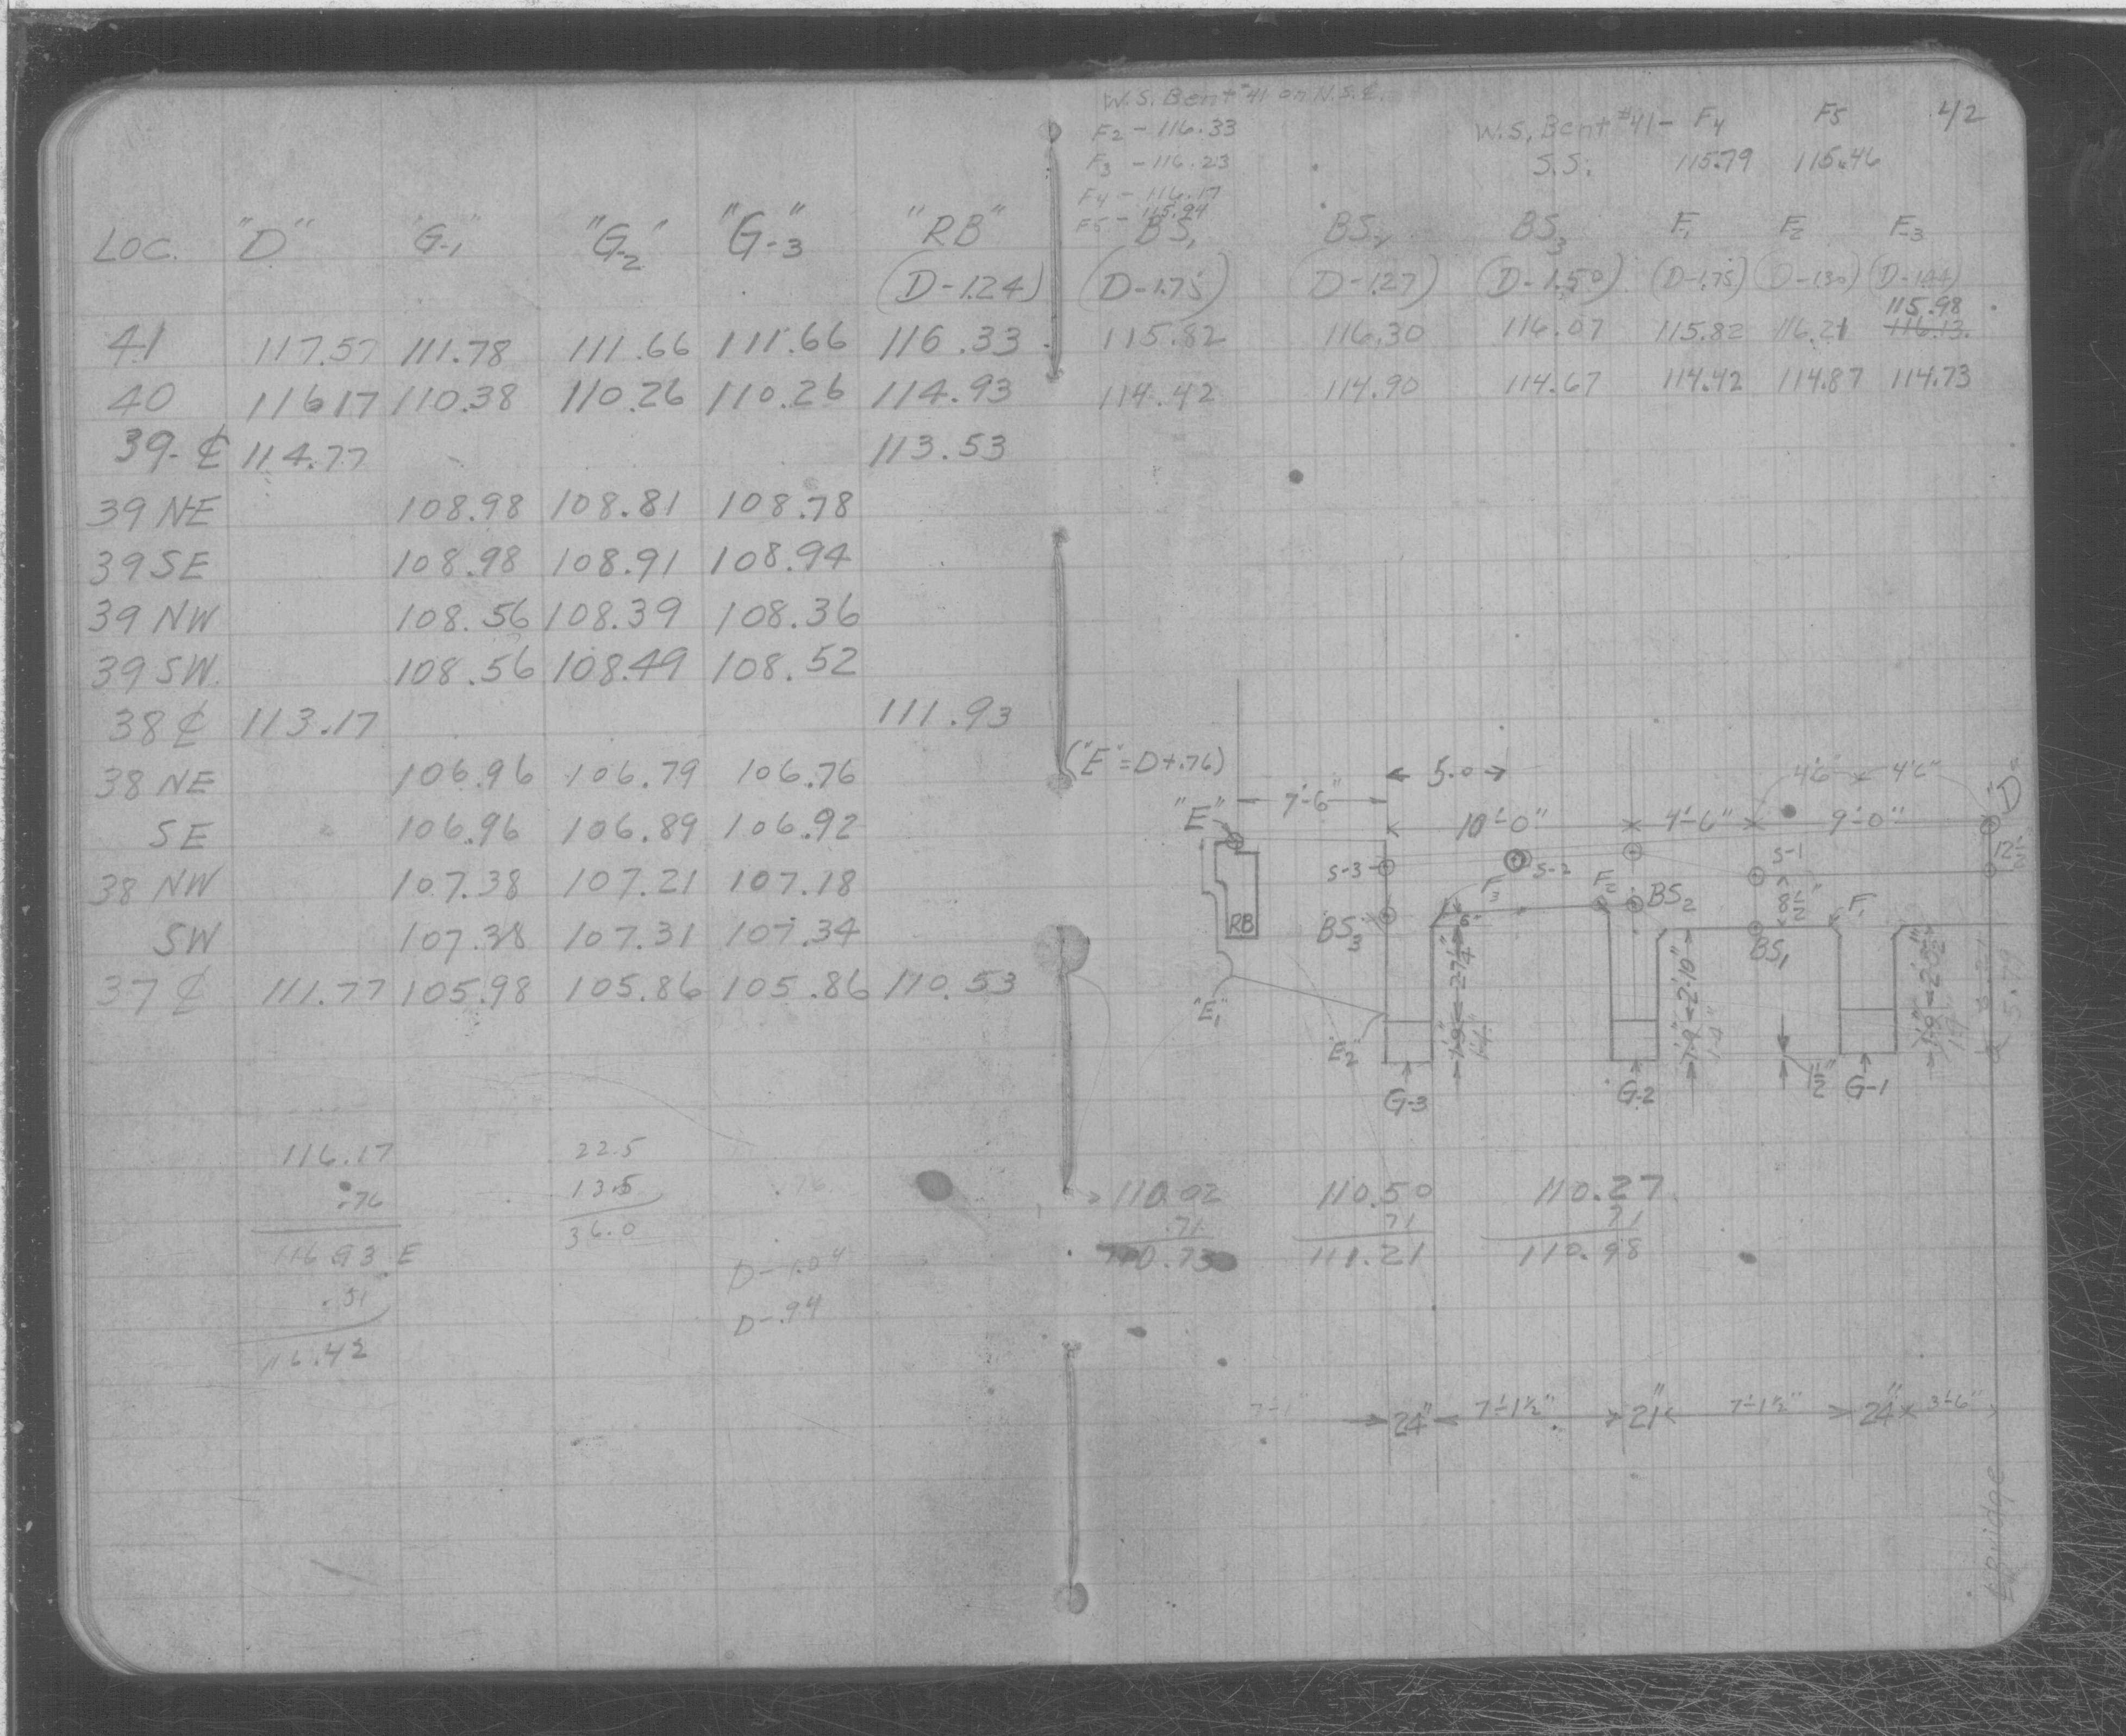 LOC. "D" "G-1" "G-2" "G-3" "RB"
(D-1.24)
41 117.57 111.78 111.66 111.66 116.33
40 116.17 110.38 110.26 110.26 114.93
39-₵ 114.77 113.53
39 NE 108.98 108.81 108.78
39 SE 108.98 108.91 108.94
39 NW 108.56 108.39 108.36
39 SW. 108.56 108.49 108.52
38 ₵ 113.17 111.93
38 NE 106.96 106.79 106.76
SE 106.96 106.89 106.92
38 NW 107.38 107.21 107.18
SW 107.38 107.31 107.34
37 ₵ 111.77 105.98 105.86 105.86 110.53
116.17 22.5
.76 13.5 .76
116.93 E 36.0
.51 D-1.04
116.42 D-.94
W.S. Bent #41 on N.S.E.
F2 - 116.33
F3 - 116.23
F4 - 116.17
F5 - 115.94
W.S. Bent #41 - F4 F5 42
S.S. 115.79 115.46
BS1 BS2 BS3 F1 F2 F-3
(D-1.75) (D-1.27) (D-1.50) (D-1.75) (D-1.30) (D-1.44)
115.98
115.82 116.30 116.07 115.82 116.21 116.13
114.42 114.90 114.67 114.42 114.87 114.73
("E"=D+.76)
5.0 4'6" 4'6"
7'-6" "D"
"E" 10'-0" 4'-6" 9'-0"
S-3 S-2 S-1 12½
F3 F2 BS2 8½" F1
RB BS3 6" BS1
27¼" 2'-10" 2'-0½"
1'-9" 1'-9" 1'-9" 5.79
"E1
E2 1½"
G-3 G-2 G-1
110.02 110.50 110.27
.71 71 71
110.73 111.21 110.98
7'-1" 24" 7'-1½" 21" 7'-1½" 24" 3'-6"
₵ Bridge